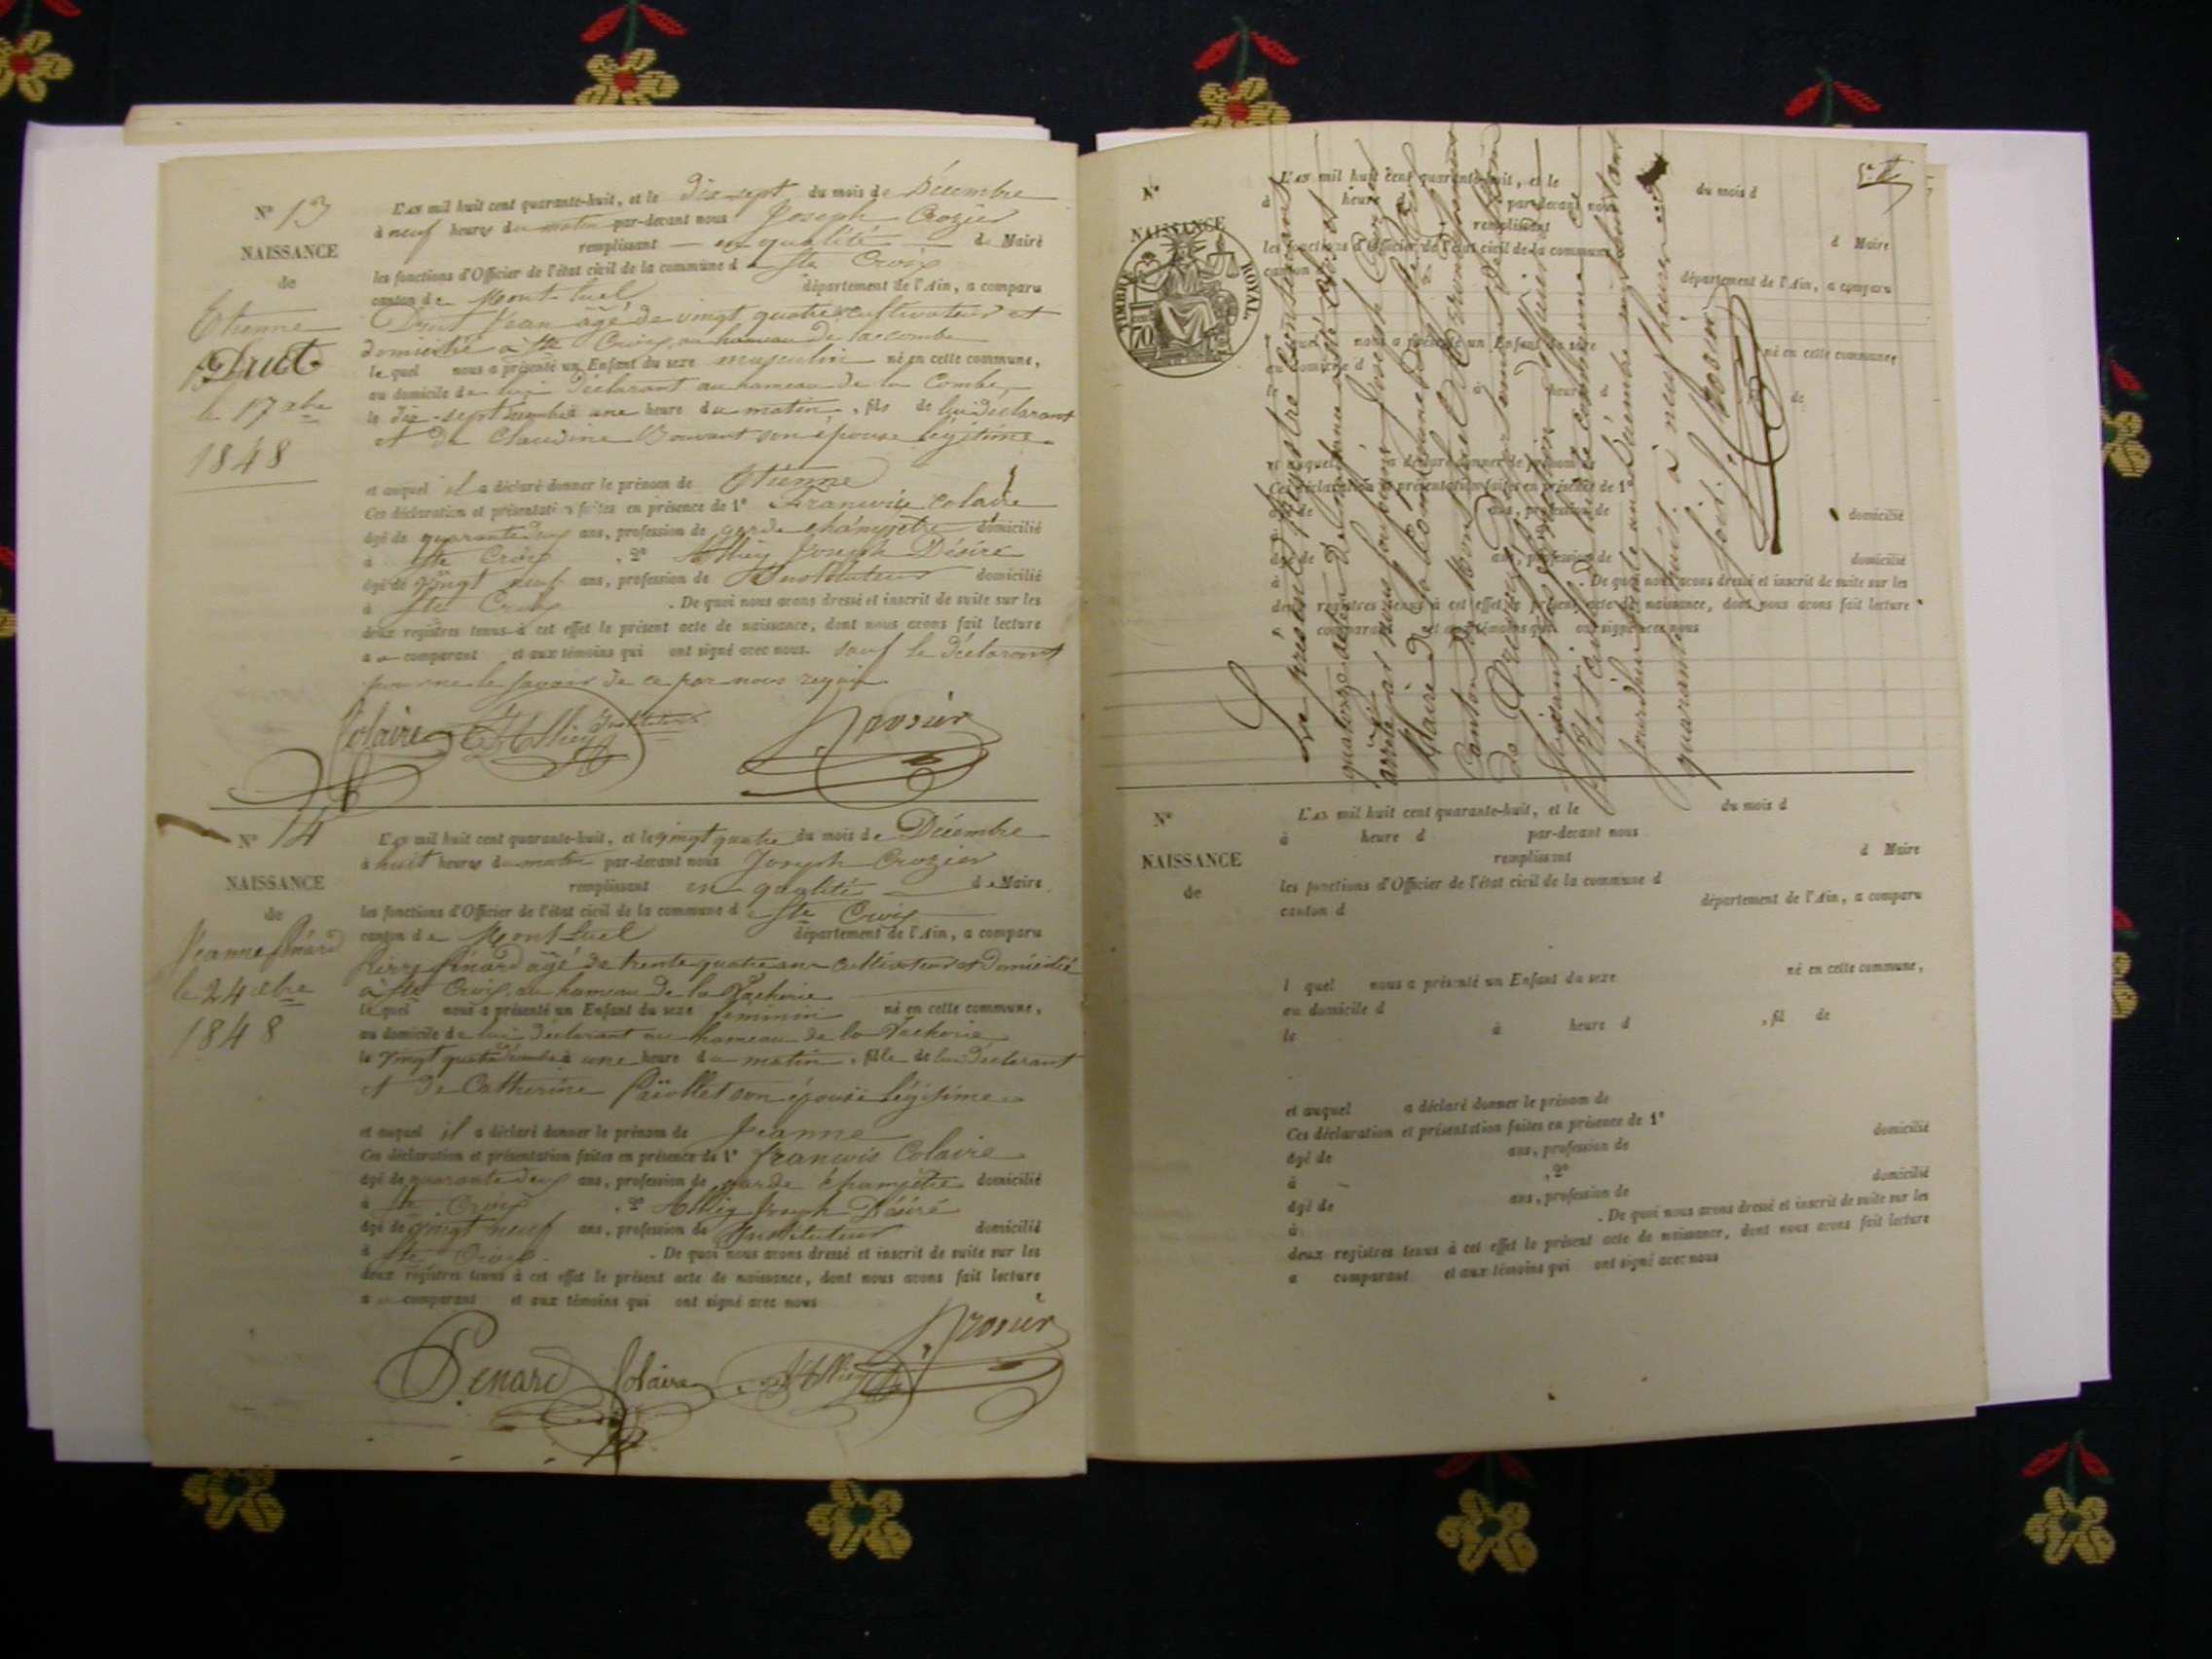 N° 13
NAISSANCE
de
Etienne
Druet
le 17 xbre
1848
L'AN mil huit cent quarante-huit, et le dix sept du mois de Décembre
à neuf heures du matin par-devant nous Joseph Crozier
remplissant en qualité de Maire
les fonctions d'Officier de l'état civil de la commune de Ste Croix
canton de Mont-luel département de l'Ain, a comparu
Druet Jean âgé de vingt quatre cultivateur et
domicilié à Ste Croix, au hameau de la combe
lequel nous a présenté un Enfant du sexe masculin né en cette commune,
au domicile de lui déclarant au hameau de la Combe
le dix-sept à une heure du matin, fils de lui déclarant
et de Claudine Bouvant son épouse légitime
et auquel il a déclaré donner le prénom de Etienne
Ces déclaration et présentation faites en présence de 1° Francois Colaire
âgé de quarante deux ans, profession de garde champêtre domicilié
à Ste Croix, 2° Joseph Désiré
âgé de vingt neuf ans, profession de Instituteur domicilié
à Ste Croix. De quoi nous avons dressé et inscrit de suite sur les
deux registres tenus à cet effet le présent acte de naissance, dont nous avons fait lecture
au comparant et aux témoins qui ont signé avec nous sauf le déclarant
pour ne le savoir de ce par nous requis
Colaire Instituteur Crozier
N° 14
NAISSANCE
de
Jeanne Pénard
le 24 xbre
1848
L'AN mil huit cent quarante-huit, et le vingt quatre du mois de Décembre
à huit heures du matin par-devant nous Joseph Crozier
remplissant en qualité de Maire
les fonctions d'Officier de l'état civil de la commune de Ste Croix
canton de Mont Luel département de l'Ain, a comparu
Pierre Pénard âgé de trente quatre ans cultivateur et domicilié
à Ste Croix au hameau de la Vacherie
lequel nous a présenté un Enfant du sexe féminin né en cette commune,
au domicile de lui déclarant au hameau de la Vacherie
le vingt quatre décembre à une heure du matin, fille de lui déclarant
et de Catherine son épouse légitime
et auquel il a déclaré donner le prénom de Jeanne
Ces déclaration et présentation faites en présence de 1° Francois Colaire
âgé de quarante deux ans, profession de garde champêtre domicilié
à Ste Croix, 2° Joseph Désiré
âgé de vingt neuf ans, profession de Instituteur domicilié
à Ste Croix. De quoi nous avons dressé et inscrit de suite sur les
deux registres tenus à cet effet le présent acte de naissance, dont nous avons fait lecture
au comparant et aux témoins qui ont signé avec nous
Penard Colaire Crozier
N°
NAISSANCE
TIMBRE ROYAL
70
L'AN mil huit cent quarante-huit, et le du mois d
à heure d par-devant nous
remplissant d Maire
les fonctions d'Officier de l'état civil de la commune
canton d département de l'Ain, a comparu
l quel nous a présenté un Enfant du sexe né en cette commune,
au domicile d
le à heure d de
et auquel a déclaré donner le prénom de
Ces déclaration et présentation faites en présence de 1°
âgé de ans, profession de domicilié
âgé de ans, profession de domicilié
à . De quoi nous avons dressé et inscrit de suite sur les
deux registres tenus à cet effet le présent acte de naissance, dont nous avons fait lecture
comparant et aux témoins qui ont signé avec nous
Le présent registre contenant
quatorze actes de naissance a été clos et
arrêté par nous Joseph Crozier
Maire de la Commune de Ste Croix
Canton de Mont luel
jourdhui trente un Décembre mil huit cent
quarante huit à neuf heures
Crozier
N°
NAISSANCE
de
L'AN mil huit cent quarante-huit, et le du mois d
à heure d par-devant nous
remplissant d Maire
les fonctions d'Officier de l'état civil de la commune d
canton d département de l'Ain, a comparu
l quel nous a présenté un Enfant du sexe né en cette commune,
au domicile d
le à heure d , fil de
et auquel a déclaré donner le prénom de
Ces déclaration et présentation faites en présence de 1°
âgé de ans, profession de domicilié
à , 2°
âgé de ans, profession de domicilié
à . De quoi nous avons dressé et inscrit de suite sur les
deux registres tenus à cet effet le présent acte de naissance, dont nous avons fait lecture
a comparant et aux témoins qui ont signé avec nous